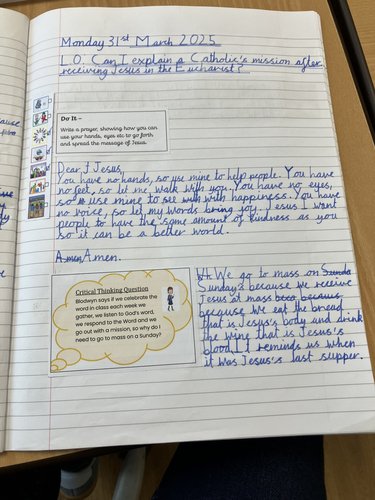 Monday 31st March 2025
L.O: Can I explain a Catholic's mission after
receiving Jesus in the Eucharist?
Do It -
Write a prayer, showing how you can
use your hands, eyes etc to go forth
and spread the message of Jesus.
Dear Jesus,
You have no hands, so use mine to help people. You have
no feet, so let me walk with you. You have no eyes,
so use mine to see with happiness. You have
no voice, so let my words bring joy. Jesus I want
people to have the same amount of kindness as you
so it can be a better world.
Amen Amen.
Critical Thinking Question
Blodwyn says if we celebrate the
word in class each week we
gather, we listen to God's word,
we respond to the Word and we
go out with a mission, so why do I
need to go to mass on a Sunday?
Wh We go to mass on Sunda
Sunday's because we receive
Jesus at mass because
because we eat the bread
that is Jesus's body and drink
the wine that is Jesus's
blood. It reminds us when
it was Jesus's last supper.